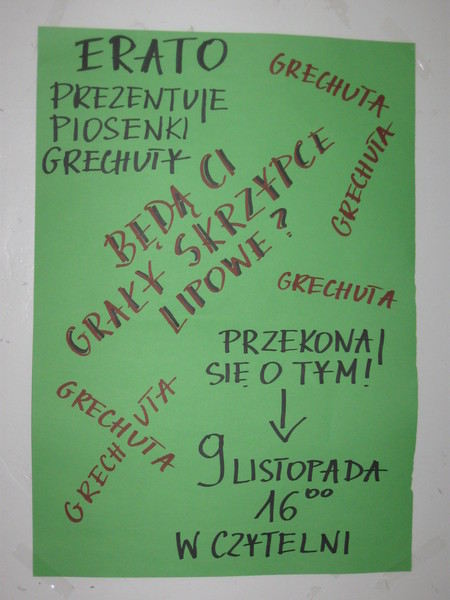 ERATO
PREZENTUJE
PIOSENKI
GRECHUTY
GRECHUTA
GRECHUTA
BĘDĄ CI
GRAŁY SKRZYPCE
LIPOWE?
GRECHUTA
PRZEKONAJ
SIĘ O TYM!
GRECHUTA
GRECHUTA
9 LISTOPADA
16⁰⁰
W CZYTELNI